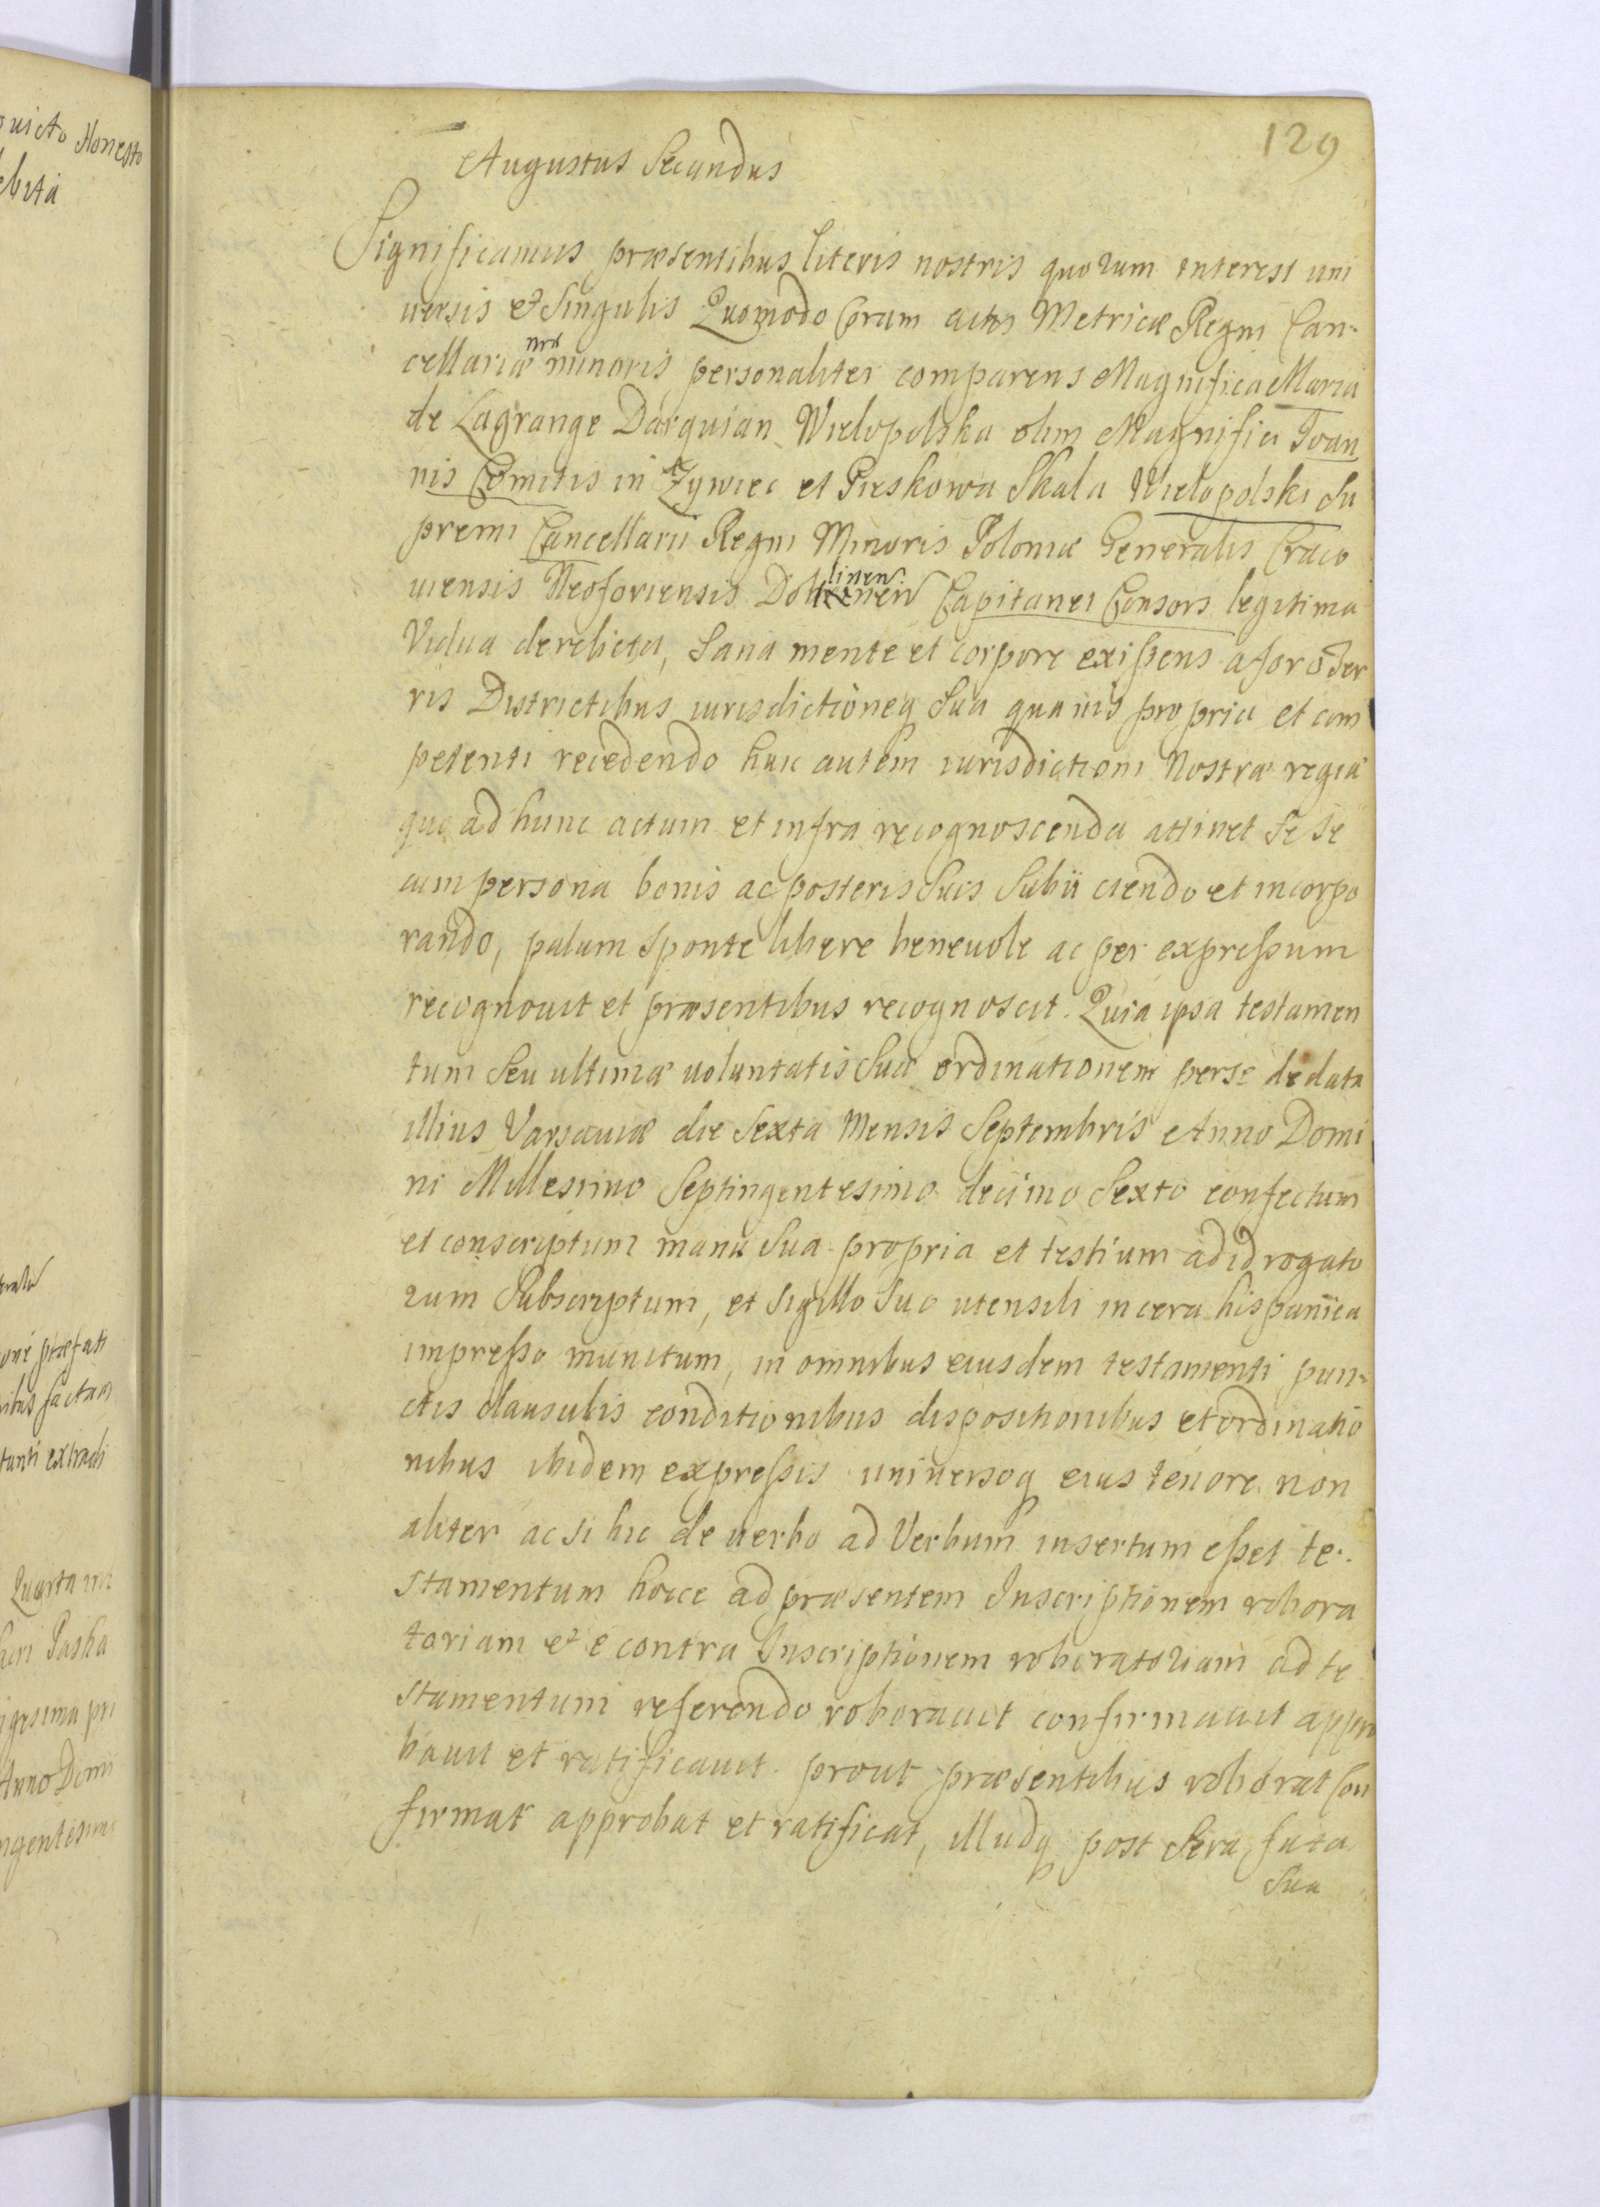 129
Augustus Secundus
Significamus præsentibus literis nostris quorum interest uni
versis et Singulis Quomodo Coram actis Metricæ Regni Can-
cellariæ nræ minoris personaliter comparens Magnifica Maria
de Lagrange Darquian Wielopolska olim Magnifici Ioan
nis Comitis in Zywiec et Pieskowa Skala Wielopolski Su
premi Cancellarii Regni Minoris Poloniæ Generalis Craco
uiensis Neoforiensis Dolinen Capitanei Consors legitima
Vidua derelicta, Sana mente et corpore existens a foro Ter
ris Districtibus iurisdictioneq Sua quavis propria et com
petenti recedendo huic autem iurisdictioni Nostræ regiæ
quo ad hunc actum et infra recognoscenda attinet Se Se
cum persona bonis ac posteris Suis Subiiciendo et incorpo
rando, palam Sponte libere beneuole ac per expressum
recognouit et præsentibus recognoscit. Quia ipsa testamen
tum Seu ultimæ uoluntatis Suæ ordinationem per se de data
illius Varsauiæ die Sexta Mensis Septembris Anno Domi
ni Millesimo Septingentesimo decimo Sexto confectum
et conscriptum manu Sua propria et testium ad id rogato
rum Subscriptum, et Sigillo Suo utensili in cera hispanica
impresso munitum, in omnibus eiusdem testamenti pun-
ctis clausulis conditionibus dispositionibus et ordinatio
nibus ibidem expressis universoq eius tenore non
aliter ac si hic de uerbo ad Verbum insertum esset te-
stamentum hocce ad præsentem Inscriptionem robora
toriam et e contra Inscriptionem roboratoriam ad te
stamentum referendo roborauit confirmauit appro
bauit et ratificauit prout præsentibus roborat Con
firmat approbat et ratificat, illudq post Sera fata
Sua